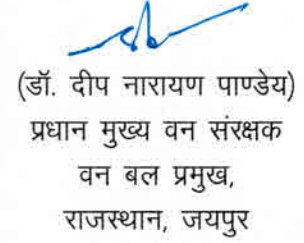 (डॉ. दीप नारायण पाण्डेय)
प्रधान मुख्य वन संरक्षक
वन बल प्रमुख,
राजस्थान, जयपुर